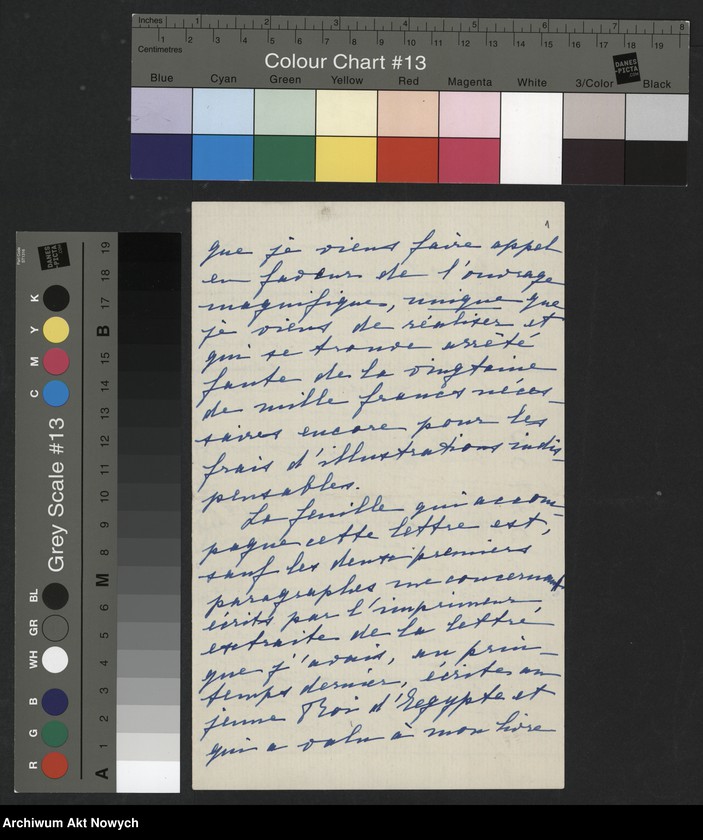 Inches 1 2 3 4 5 6 7 8
Centimetres 1 2 3 4 5 6 7 8 9 10 11 12 13 14 15 16 17 18 19
Colour Chart #13
DANES-PICTA.COM
Blue Cyan Green Yellow Red Magenta White 3/Color Black
Grey Scale #13
DANES-PICTA.COM
K Y M C BL GR WH B G R
19 18 17 B 15 14 13 12 11 10 9 M 6 5 4 3 2 1 A
que je viens faire appel
en faveur de l'ouvrage
magnifique, unique que
je viens de réaliser et
qui se trouve arrêté
faute de la vingtaine
de mille francs néces-
saires encore pour les
frais d'illustrations indis-
pensables.
La feuille qui accom-
pagne cette lettre est,
sauf les deux premiers
paragraphes me concernant
écrits par l'imprimeur
extraite de la lettre
que j'avais, au prin-
temps dernier, écrite au
jeune Roi d'Egypte et
qui a valu à mon livre
Archiwum Akt Nowych